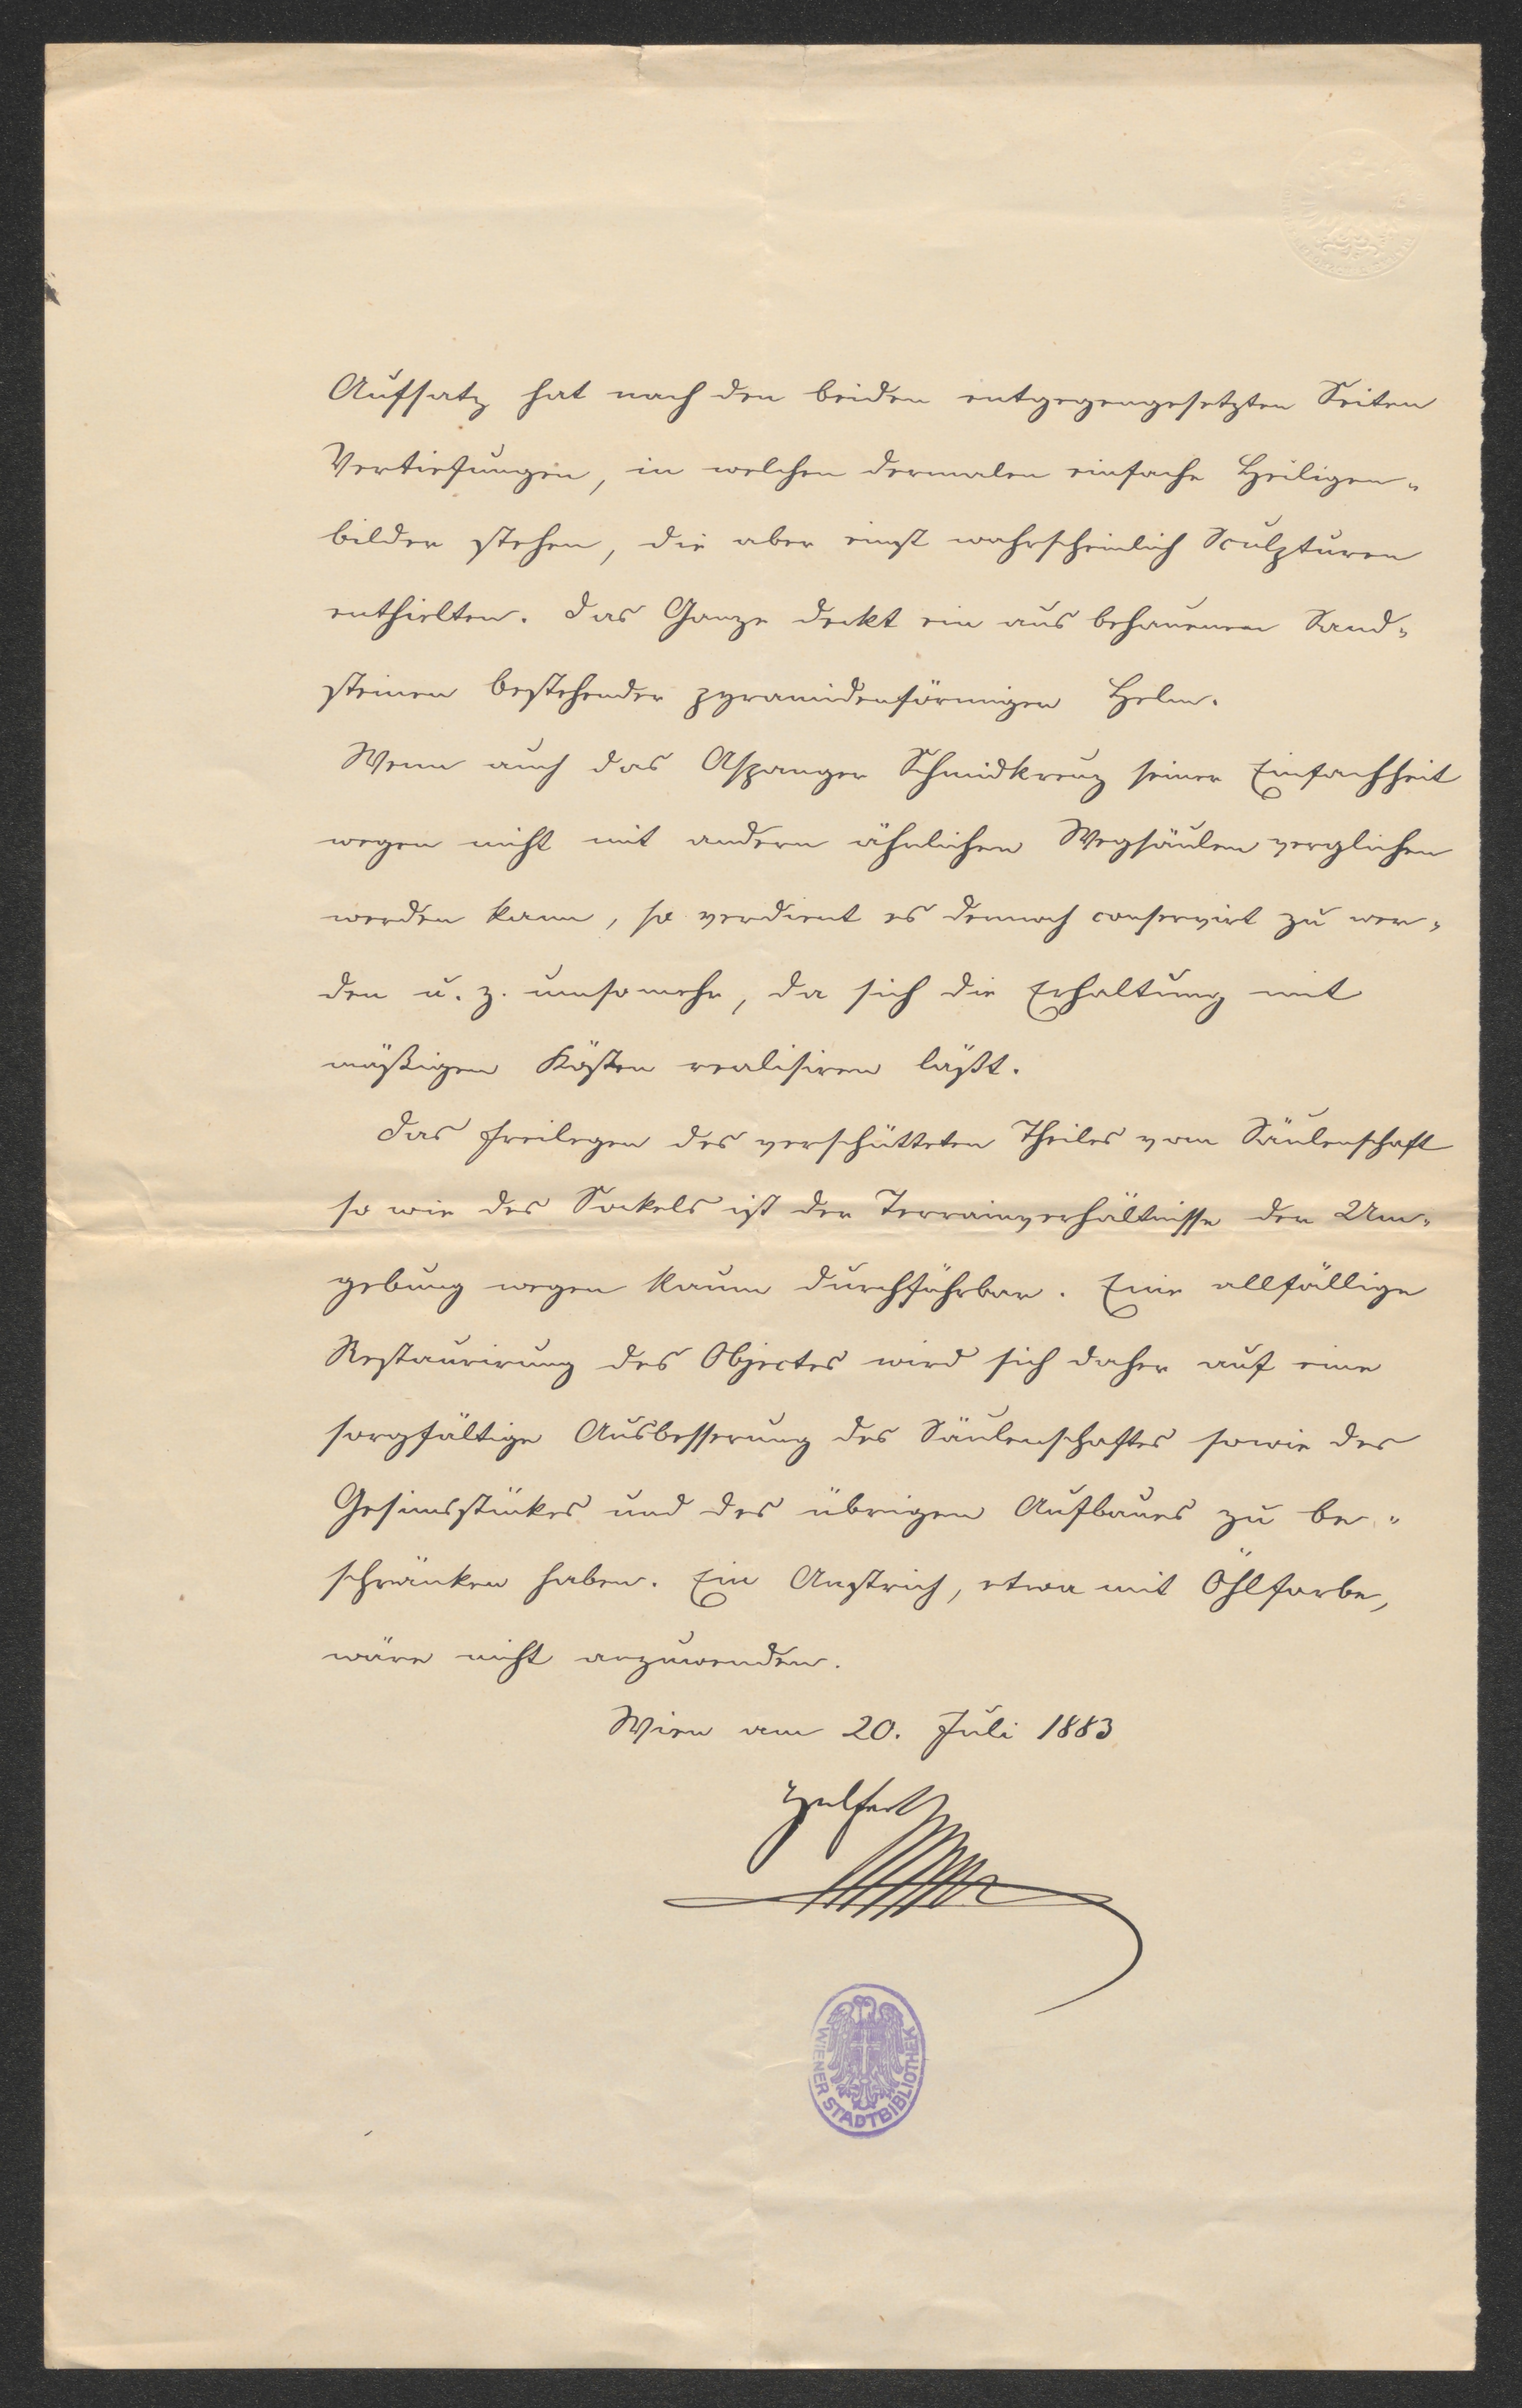 Aufsatz hat nach den beiden entgegengesetzten Seiten
Vertiefungen, in welchen dermalen einfache Heiligen-
bilder stehen, die aber einst wahrscheinlich Sculpturen
enthielten. Das Ganze deckt ein aus behauenen Sand-
steinen bestehender pyramidenförmiger Helm.
Wenn auch das Aspanger Schmidkreuz seiner Einfachheit
wegen nicht mit andern ähnlichen Wegsäulen verglichen
werden kann, so verdient es dennoch conservirt zu wer-
den u. z. umsomehr, da sich die Erhaltung mit
mäßigen Kosten realisiren läßt.
Das Freilegen des verschütteten Theiles vom Säulenschaft
so wie des Sockels ist der Terrainverhältnisse der Um-
gebung wegen kaum durchführbar. Eine allfällige
Restaurirung des Objectes wird sich daher auf eine
sorgfältige Ausbesserung des Säulenschaftes sowie des
Gesimsstückes und des übrigen Aufbaues zu be-
schränken haben. Ein Anstrich, etwa mit Öhlfarbe,
wäre nicht anzuwenden.
Wien am 20. Juli 1883
Helfert
WIENER STADTBIBLIOTHEK